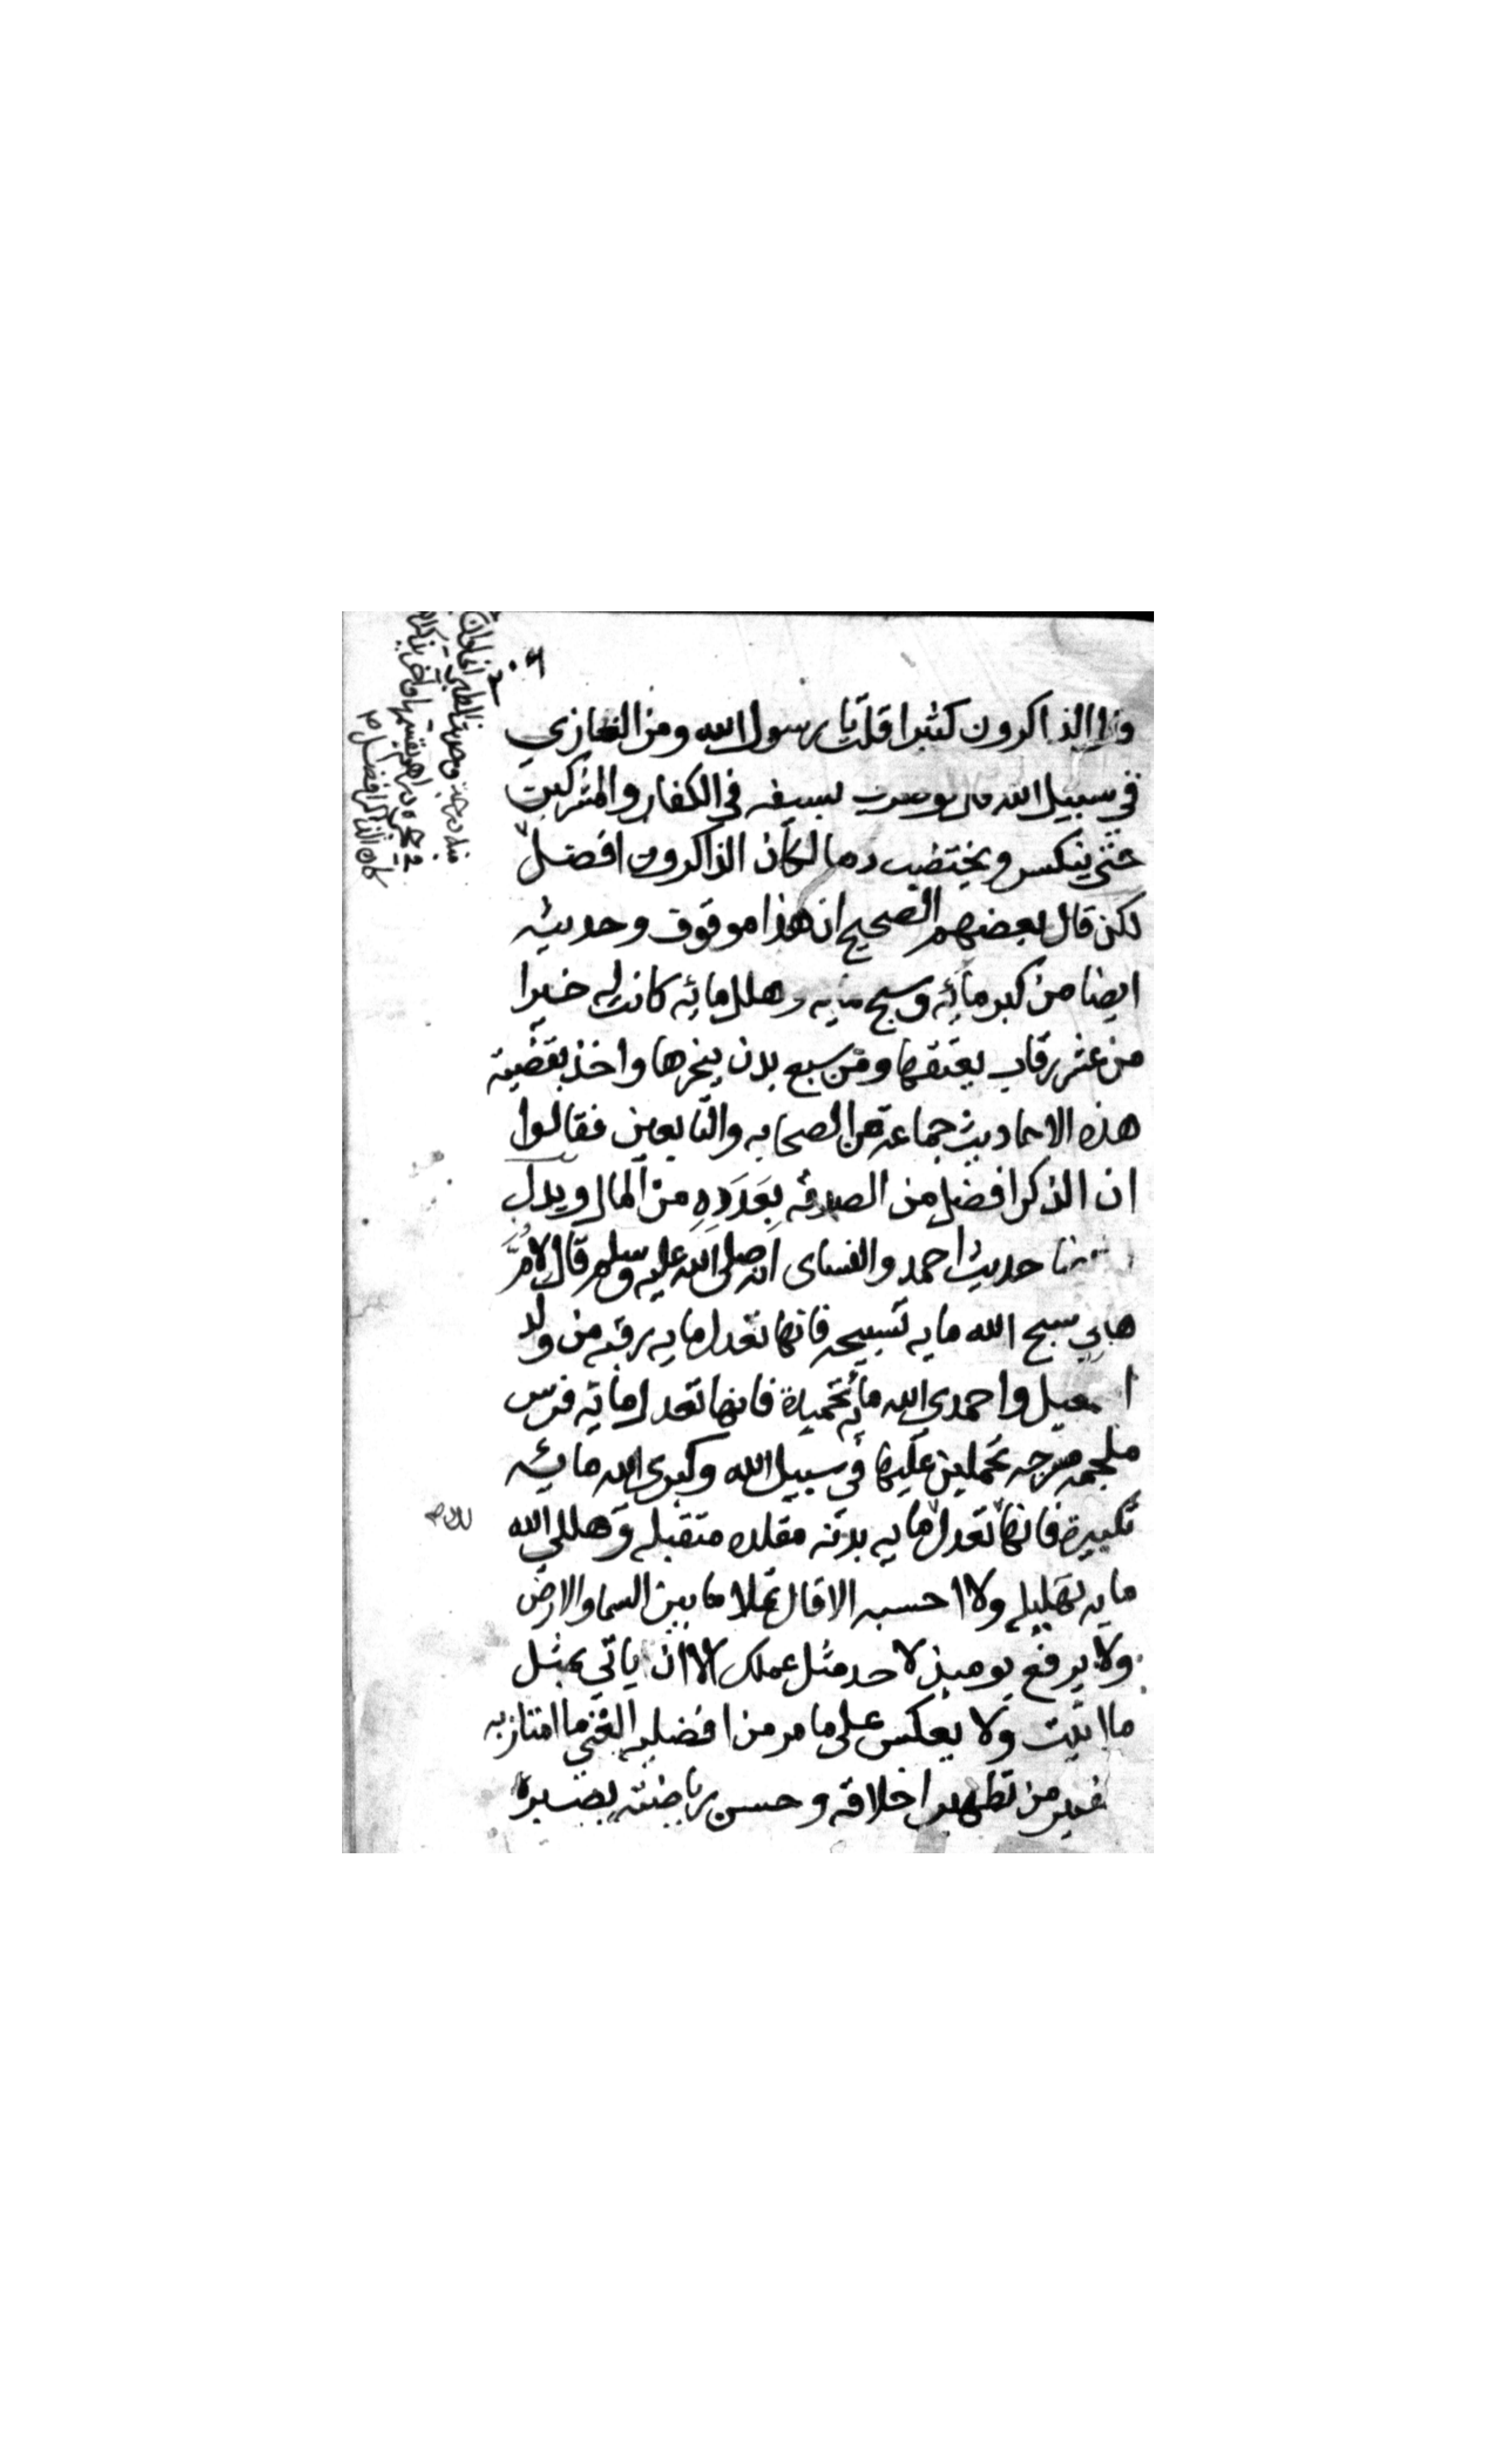 ٢٠٤
قال الذاكرون كثيرا قلت يا رسول الله ومن الغازي
في سبيل الله قال لو ضرب بسيفه في الكفار والمشركين
حتى ينكسر ويختضب دما لكان الذاكرون افضل
لكن قال بعضهم الصحيح ان هذا موقوف وحديثه
ايضا من كبر مائه وسبح مايه وهلل مائه كانت له خيرا
من عشر رقاب يعتقها ومن سبع بدن ينحرها واخذ بقضية
هذه الاحاديث جماعة من الصحابه والتابعين فقالوا
ان الذكر افضل من الصدقه بعدده من المال ويدل
حديث احمد والنساى انه صلى الله عليه وسلم قال لام
هاني سبح الله مايه تسبيحه فانها تعدل مايه رقبه من ولد
اسمعيل واحمدي الله مائه تحميدة فانها تعدل مائه فرس
ملجمه مسرجه تحملين عليها في سبيل الله وكبري الله مائه
تكبيرة فانها تعدل مايه بدنه مقلده متقبله وهللي الله
مايه تهليله ولا احسبه الا قال تملا ما بين السما والارض
ولا يرفع يوميذ لاحد مثل عملك الا ان ياتي بمثل
ما اتيت ولا يعكس على ما مر من افضليه الغني ما امتاز به
الفقير من تطهير اخلاقه وحسن رياضته بصبره